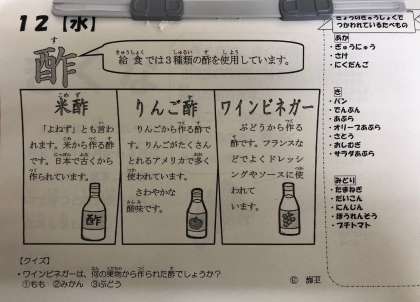 12【水】
きょうのきゅうしょくで
つかわれているたべもの
す
酢
きゅうしょく しゅるい す しよう
給食では3種類の酢を使用しています。
こめず
米酢
「よねず」とも言わ
れます。米から作る酢
です。日本で古くから
作られています。
酢
りんご酢
りんごから作る酢で
す。りんごがたくさん
とれるアメリカで多く
使われています。
さわやかな
酸味です。
ワインビネガー
ぶどうから作る
酢です。フランスな
どでよくドレッシ
ングやソースに使
われて
います。
あか
・ぎゅうにゅう
・さけ
・にくだんご
き
・パン
・でんぷん
・あぶら
・オリーブあぶら
・さとう
・おしむぎ
・サラダあぶら
みどり
・たまねぎ
・だいこん
・にんじん
・ほうれんそう
・プチトマト
【クイズ】
・ワインビネガーは、何の果物から作られた酢でしょうか?
①もも ②みかん ③ぶどう